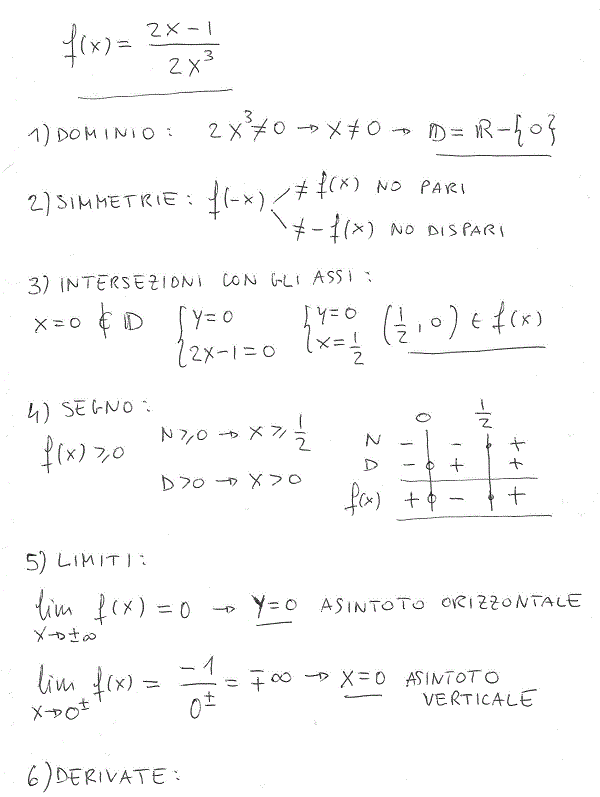 f(x) = (2x-1)/(2x³)
1) DOMINIO: 2x³≠0 → x≠0 → D=R-{0}
2) SIMMETRIE: f(-x) ≠ f(x) NO PARI
≠ -f(x) NO DISPARI
3) INTERSEZIONI CON GLI ASSI:
x=0 ∉ D {y=0 2x-1=0 {y=0 x=1/2 (1/2, 0) ∈ f(x)
4) SEGNO:
f(x)≥0 N≥0 → x≥1/2
D>0 → x>0
0 1/2
N - - +
D - + +
f(x) + - +
5) LIMITI:
lim x→±∞ f(x) = 0 → y=0 ASINTOTO ORIZZONTALE
lim x→0± f(x) = -1/0± = ∓∞ → x=0 ASINTOTO VERTICALE
6) DERIVATE: